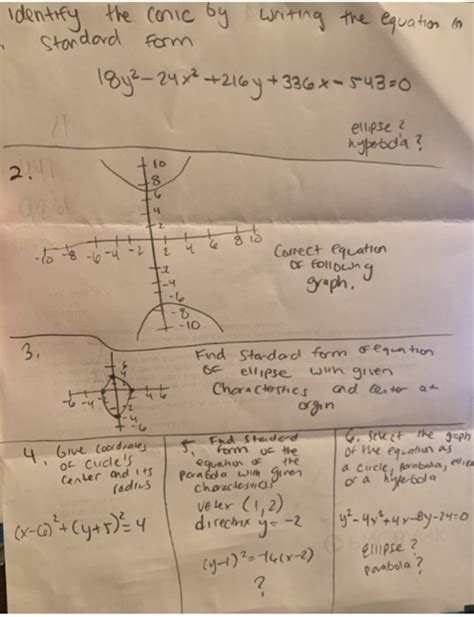 Identify the conic by writing the equation in
standard form
18y²-24x²+216y+336x-543=0
ellipse?
hyperbola?
2.
10
8
6
4
2
-10 -8 -6 -4 -2 2 4 6 8 10
-2
-4
-6
-8
-10
Correct equation
of following
graph.
3.
Find standard form of equation
of ellipse with given
characteristics and center at
orgin
-6 -4 2 4 6
-4
-6
4. Give coordinates
of circle's
center and its
radius
(x-6)²+(y+5)²=4
5. Find standard
form of the
equation of the
parabola with given
characteristics
vetex (1,2)
directrix y=-2
(y-1)²=-16(x-2)
?
6. select the graph
of the equation as
a circle, parabola, ellipse
or a hyperbola
y²-4x²+4x-8y-24=0
Ellipse?
parabola?